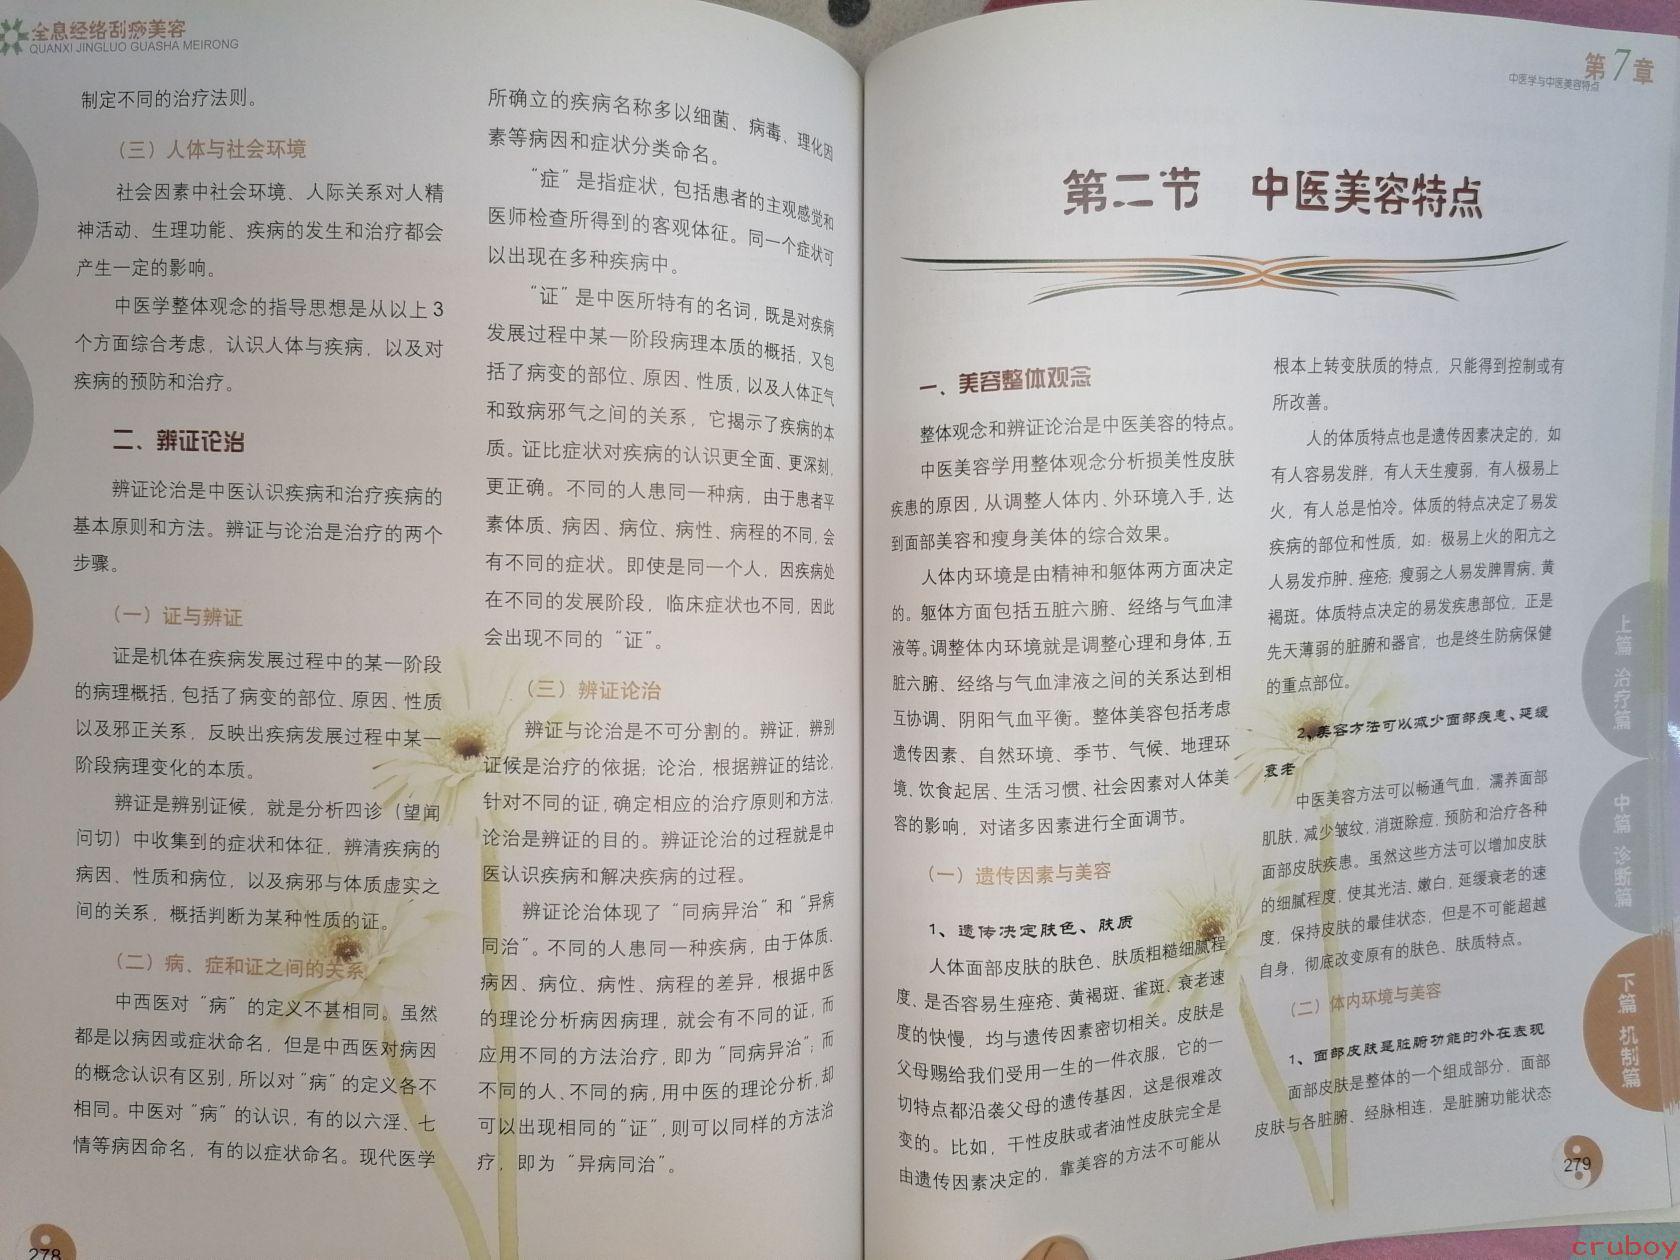 全息经络刮痧美容
QUANXI JINGLUO GUASHA MEIRONG
制定不同的治疗法则。
（三）人体与社会环境
社会因素中社会环境、人际关系对人精
神活动、生理功能、疾病的发生和治疗都会
产生一定的影响。
中医学整体观念的指导思想是从以上 3
个方面综合考虑，认识人体与疾病，以及对
疾病的预防和治疗。
二、辨证论治
辨证论治是中医认识疾病和治疗疾病的
基本原则和方法。辨证与论治是治疗的两个
步骤。
（一）证与辨证
证是机体在疾病发展过程中的某一阶段
的病理概括，包括了病变的部位、原因、性质
以及邪正关系，反映出疾病发展过程中某一
阶段病理变化的本质。
辨证是辨别证候，就是分析四诊（望闻
问切）中收集到的症状和体征，辨清疾病的
病因、性质和病位，以及病邪与体质虚实之
间的关系，概括判断为某种性质的证。
（二）病、症和证之间的关系
中西医对“病”的定义不甚相同。虽然
都是以病因或症状命名，但是中西医对病因
的概念认识有区别，所以对“病”的定义各不
相同。中医对“病”的认识，有的以六淫、七
情等病因命名，有的以症状命名。现代医学
278
所确立的疾病名称多以细菌、病毒、理化因
素等病因和症状分类命名。
“症”是指症状，包括患者的主观感觉和
医师检查所得到的客观体征。同一个症状可
以出现在多种疾病中。
“证”是中医所特有的名词，既是对疾病
发展过程中某一阶段病理本质的概括，又包
括了病变的部位、原因、性质，以及人体正气
和致病邪气之间的关系，它揭示了疾病的本
质。证比症状对疾病的认识更全面、更深刻，
更正确。不同的人患同一种病，由于患者平
素体质、病因、病位、病性、病程的不同，会
有不同的症状。即使是同一个人，因疾病处
在不同的发展阶段，临床症状也不同，因此
会出现不同的“证”。
（三）辨证论治
辨证与论治是不可分割的。辨证，辨别
证候是治疗的依据；论治，根据辨证的结论，
针对不同的证，确定相应的治疗原则和方法，
论治是辨证的目的。辨证论治的过程就是中
医认识疾病和解决疾病的过程。
辨证论治体现了“同病异治”和“异病
同治”。不同的人患同一种疾病，由于体质、
病因、病位、病性、病程的差异，根据中医
的理论分析病因病理，就会有不同的证，而
应用不同的方法治疗，即为“同病异治”；而
不同的人、不同的病，用中医的理论分析，却
可以出现相同的“证”，则可以同样的方法治
疗，即为“异病同治”。
第7章
中医学与中医美容特点
第二节 中医美容特点
一、美容整体观念
整体观念和辨证论治是中医美容的特点。
中医美容学用整体观念分析损美性皮肤
疾患的原因，从调整人体内、外环境入手，达
到面部美容和瘦身美体的综合效果。
人体内环境是由精神和躯体两方面决定
的。躯体方面包括五脏六腑、经络与气血津
液等。调整体内环境就是调整心理和身体，五
脏六腑、经络与气血津液之间的关系达到相
互协调、阴阳气血平衡。整体美容包括考虑
遗传因素、自然环境、季节、气候、地理环
境、饮食起居、生活习惯、社会因素对人体美
容的影响，对诸多因素进行全面调节。
（一）遗传因素与美容
1、遗传决定肤色、肤质
人体面部皮肤的肤色、肤质粗糙细腻程
度、是否容易生痤疮、黄褐斑、雀斑、衰老速
度的快慢，均与遗传因素密切相关。皮肤是
父母赐给我们受用一生的一件衣服，它的一
切特点都沿袭父母的遗传基因，这是很难改
变的。比如，干性皮肤或者油性皮肤完全是
由遗传因素决定的，靠美容的方法不可能从
根本上转变肤质的特点，只能得到控制或有
所改善。
人的体质特点也是遗传因素决定的，如
有人容易发胖，有人天生瘦弱，有人极易上
火，有人总是怕冷。体质的特点决定了易发
疾病的部位和性质，如：极易上火的阳亢之
人易发疖肿、痤疮；瘦弱之人易发脾胃病、黄
褐斑。体质特点决定的易发疾患部位，正是
先天薄弱的脏腑和器官，也是终生防病保健
的重点部位。
2、美容方法可以减少面部疾患、延缓
衰老
中医美容方法可以畅通气血，濡养面部
肌肤，减少皱纹，消斑除痘，预防和治疗各种
面部皮肤疾患。虽然这些方法可以增加皮肤
的细腻程度，使其光洁、嫩白，延缓衰老的速
度，保持皮肤的最佳状态，但是不可能超越
自身，彻底改变原有的肤色、肤质特点。
（二）体内环境与美容
1、面部皮肤是脏腑功能的外在表现
面部皮肤是整体的一个组成部分，面部
皮肤与各脏腑、经脉相连，是脏腑功能状态
279
上篇 治疗篇
中篇 诊断篇
下篇 机制篇
cruboy